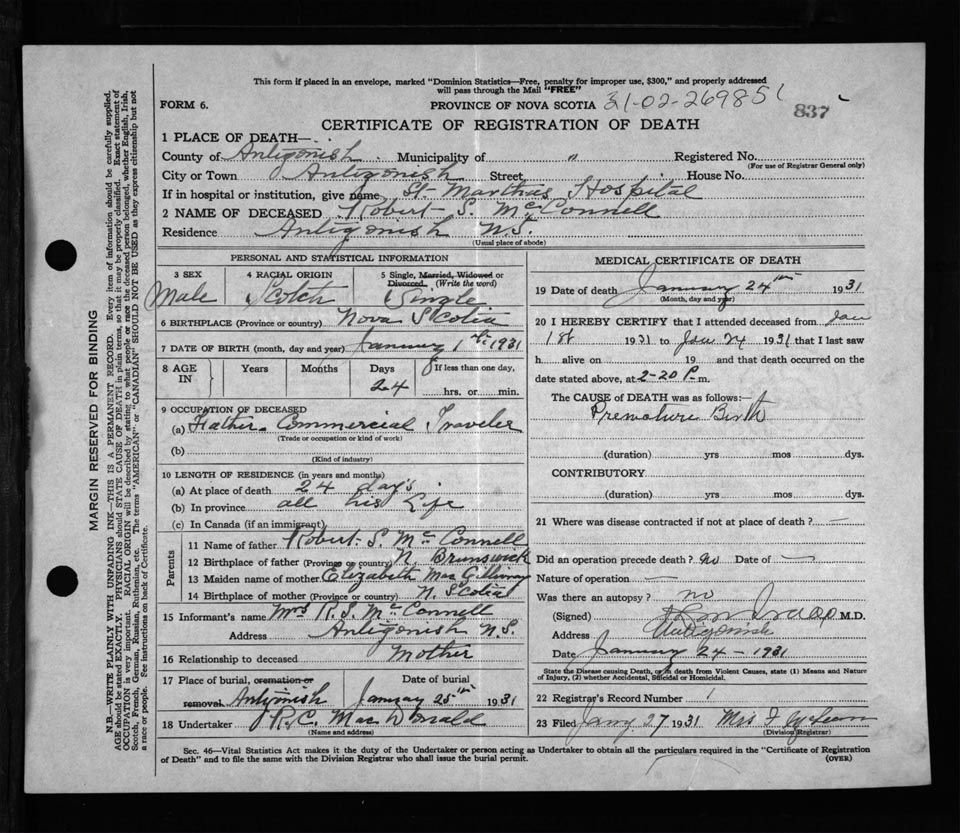 This form if placed in an envelope, marked "Dominion Statistics—Free, penalty for improper use, $300," and properly addressed
will pass through the Mail "FREE"
FORM 6. PROVINCE OF NOVA SCOTIA 31-02-269851 837
CERTIFICATE OF REGISTRATION OF DEATH
1 PLACE OF DEATH—
County of Antigonish Municipality of " Registered No.
(For use of Registrar General only)
City or Town Antigonish Street House No.
If in hospital or institution, give name St Martha's Hospital
2 NAME OF DECEASED Robert S. McConnell
Residence Antigonish N.S.
(Usual place of abode)
PERSONAL AND STATISTICAL INFORMATION
3 SEX 4 RACIAL ORIGIN 5 Single, Married, Widowed or Divorced (Write the word)
Male Scotch Single
6 BIRTHPLACE (Province or country) Nova Scotia
7 DATE OF BIRTH (month, day and year) January 1st 1931
8 AGE IN Years Months Days If less than one day,
24 hrs. or min.
9 OCCUPATION OF DECEASED
(a) Father Commercial Traveler
(Trade or occupation or kind of work)
(b)
(Kind of industry)
10 LENGTH OF RESIDENCE (in years and months)
(a) At place of death 24 days
(b) In province all his Life
(c) In Canada (if an immigrant)
Parents
11 Name of father Robert S. McConnell
12 Birthplace of father (Province or country) N. Brunswick
13 Maiden name of mother Elizabeth MacGillivray
14 Birthplace of mother (Province or country) N. Scotia
15 Informant's name Mrs R.S. McConnell
Address Antigonish N.S.
16 Relationship to deceased Mother
17 Place of burial, cremation or removal. Date of burial
Antigonish January 25th 1931
18 Undertaker R.C. MacDonald
(Name and address)
MEDICAL CERTIFICATE OF DEATH
19 Date of death January 24th 1931
(Month, day and year)
20 I HEREBY CERTIFY that I attended deceased from Jan
1st 1931 to Jan 24 1931 that I last saw
h alive on 19 and that death occurred on
date stated above, at 2-20 P.m.
The CAUSE of DEATH was as follows:—
Premature Birth
(duration) yrs mos dys.
CONTRIBUTORY
(duration) yrs mos dys.
21 Where was disease contracted if not at place of death? —
Did an operation precede death? no Date of —
Nature of operation —
Was there an autopsy? no
(Signed) M.D.
Address Antigonish
Date January 24 - 1931
State the Disease causing Death, or in death from Violent Causes, state (1) Means and Nature
of Injury, (2) whether Accidental, Suicidal or Homicidal.
22 Registrar's Record Number 1
23 Filed Jany 27 1931 Miss
(Division Registrar)
Sec. 46—Vital Statistics Act makes it the duty of the Undertaker or person acting as Undertaker to obtain all the particulars required in the "Certificate of Registration
of Death" and to file the same with the Division Registrar who shall issue the burial permit. (OVER)
MARGIN RESERVED FOR BINDING
N.B.—WRITE PLAINLY WITH UNFADING INK—THIS IS A PERMANENT RECORD. Every item of information should be carefully supplied.
AGE should be stated EXACTLY. PHYSICIANS should STATE CAUSE OF DEATH in plain terms, so that it may be properly classified. Exact statement of
OCCUPATION is very important. RACIAL ORIGIN will be described by stating to what people or race the deceased person belonged, whether English, Irish,
Scotch, French, German, Russian, Ruthenian, etc. The terms "AMERICAN" or "CANADIAN" SHOULD NOT BE USED as they express citizenship but not
a race or people. See instructions on back of Certificate.